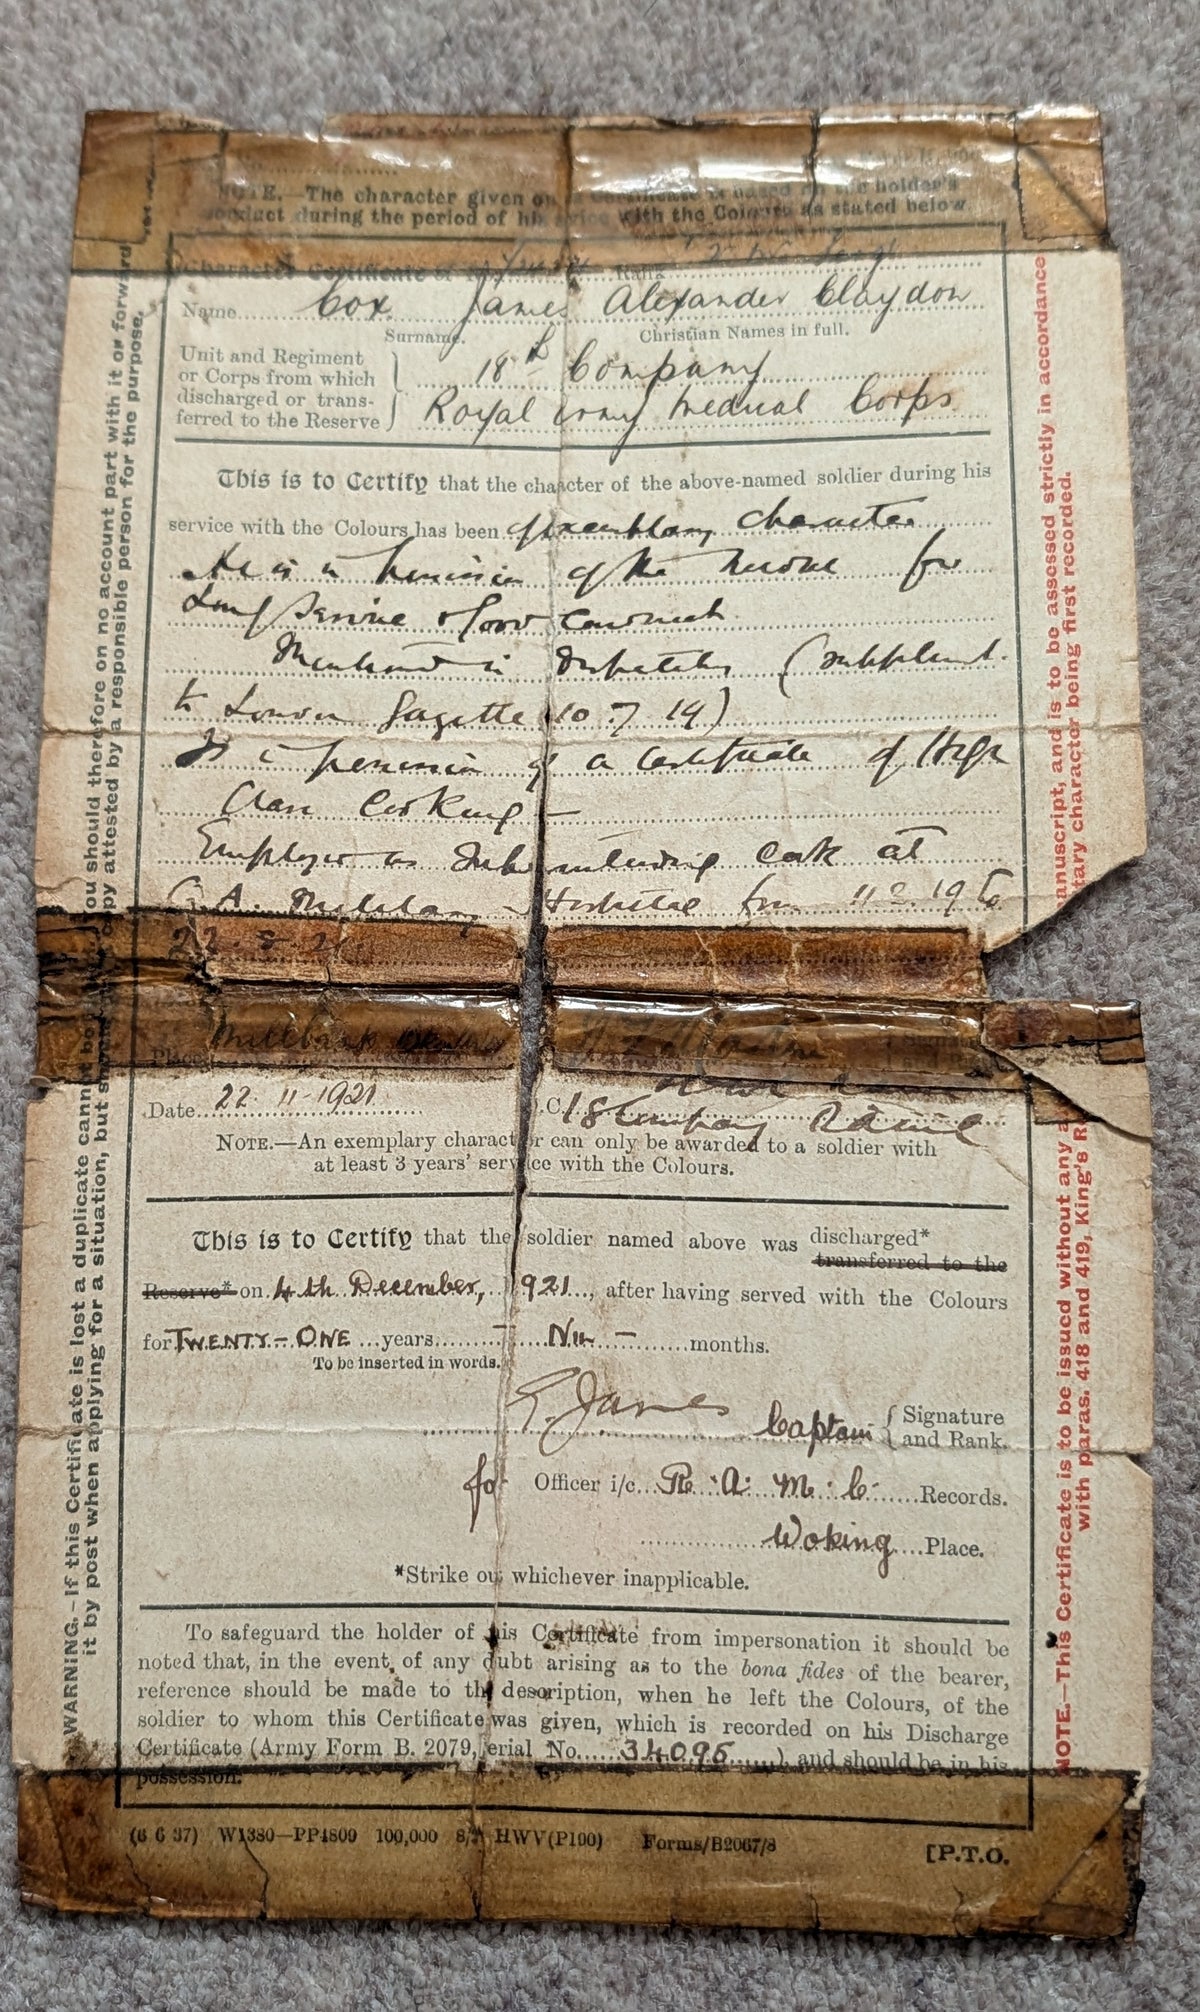 NOTE.—The character given on Certificate is based on the holder's
conduct during the period of his service with the Colours as stated below.
Character Certificate of No. Rank
Name Cox James Alexander Claydon
Surname. Christian Names in full.
Unit and Regiment
or Corps from which
discharged or trans-
ferred to the Reserve
18th Company
Royal Army Medical Corps
This is to Certify that the character of the above-named soldier during his
service with the Colours has been of exemplary character
He is in possession of the medal for
Long Service & Good Conduct
Mentioned in Despatches (supplement
to London Gazette 10 7 19)
Is in possession of a certificate of High
Class Cooking —
Employed as Superintending Cook at
Q.A. Military Hospital from 11 2 19 to
22.8.21.
Place Millbank
Date 22 11 1921
O.C. 18 Company R.A.M.C
NOTE.—An exemplary character can only be awarded to a soldier with
at least 3 years' service with the Colours.
This is to Certify that the soldier named above was discharged*
transferred to the
Reserve* on 4th December, 1921, after having served with the Colours
for TWENTY-ONE years — Nil — months.
To be inserted in words.
E. James Captain Signature
and Rank.
for Officer i/c R.A.M.C. Records.
Woking Place.
*Strike out whichever inapplicable.
To safeguard the holder of his Certificate from impersonation it should be
noted that, in the event of any dubt arising as to the bona fides of the bearer,
reference should be made to the description, when he left the Colours, of the
soldier to whom this Certificate was given, which is recorded on his Discharge
Certificate (Army Form B. 2079, erial No. 34095), and should be in his
possession.
(6 6 37) W1380—PP4809 100,000 HWV(P100) Forms/B2067/8
[P.T.O.
WARNING.—If this Certificate is lost a duplicate cannot be you should therefore on no account part with it or forward
it by post when applying for a situation, but should copy attested by a responsible person for the purpose.
NOTE.—This Certificate is to be issued without any manuscript, and is to be assessed strictly in accordance
with paras. 418 and 419, King's tary character being first recorded.